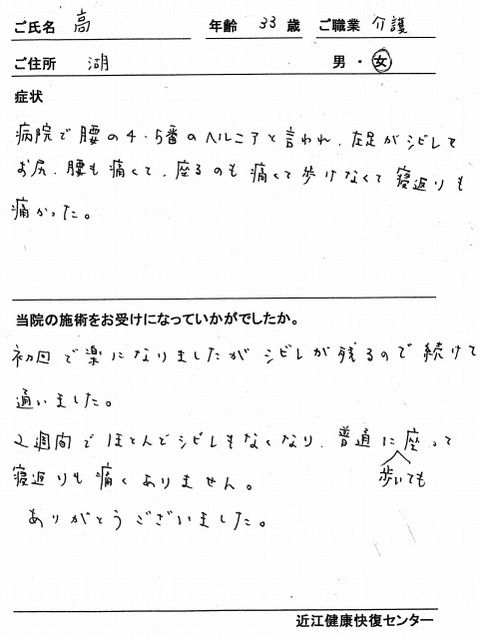 ご氏名 高 年齢 33 歳 ご職業 介護
ご住所 湖 男・女
症状
病院で腰の4.5番のヘルニアと言われ、左足がシビレて
お尻、腰も痛くて、座るのも痛くて歩けなくて寝返りも
痛かった。
当院の施術をお受けになっていかがでしたか。
初回で楽になりましたがシビレが残るので続けて
通いました。
2週間でほとんどシビレもなくなり、普通に座って
歩いても
寝返りも痛くありません。
ありがとうございました。
近江健康快復センター